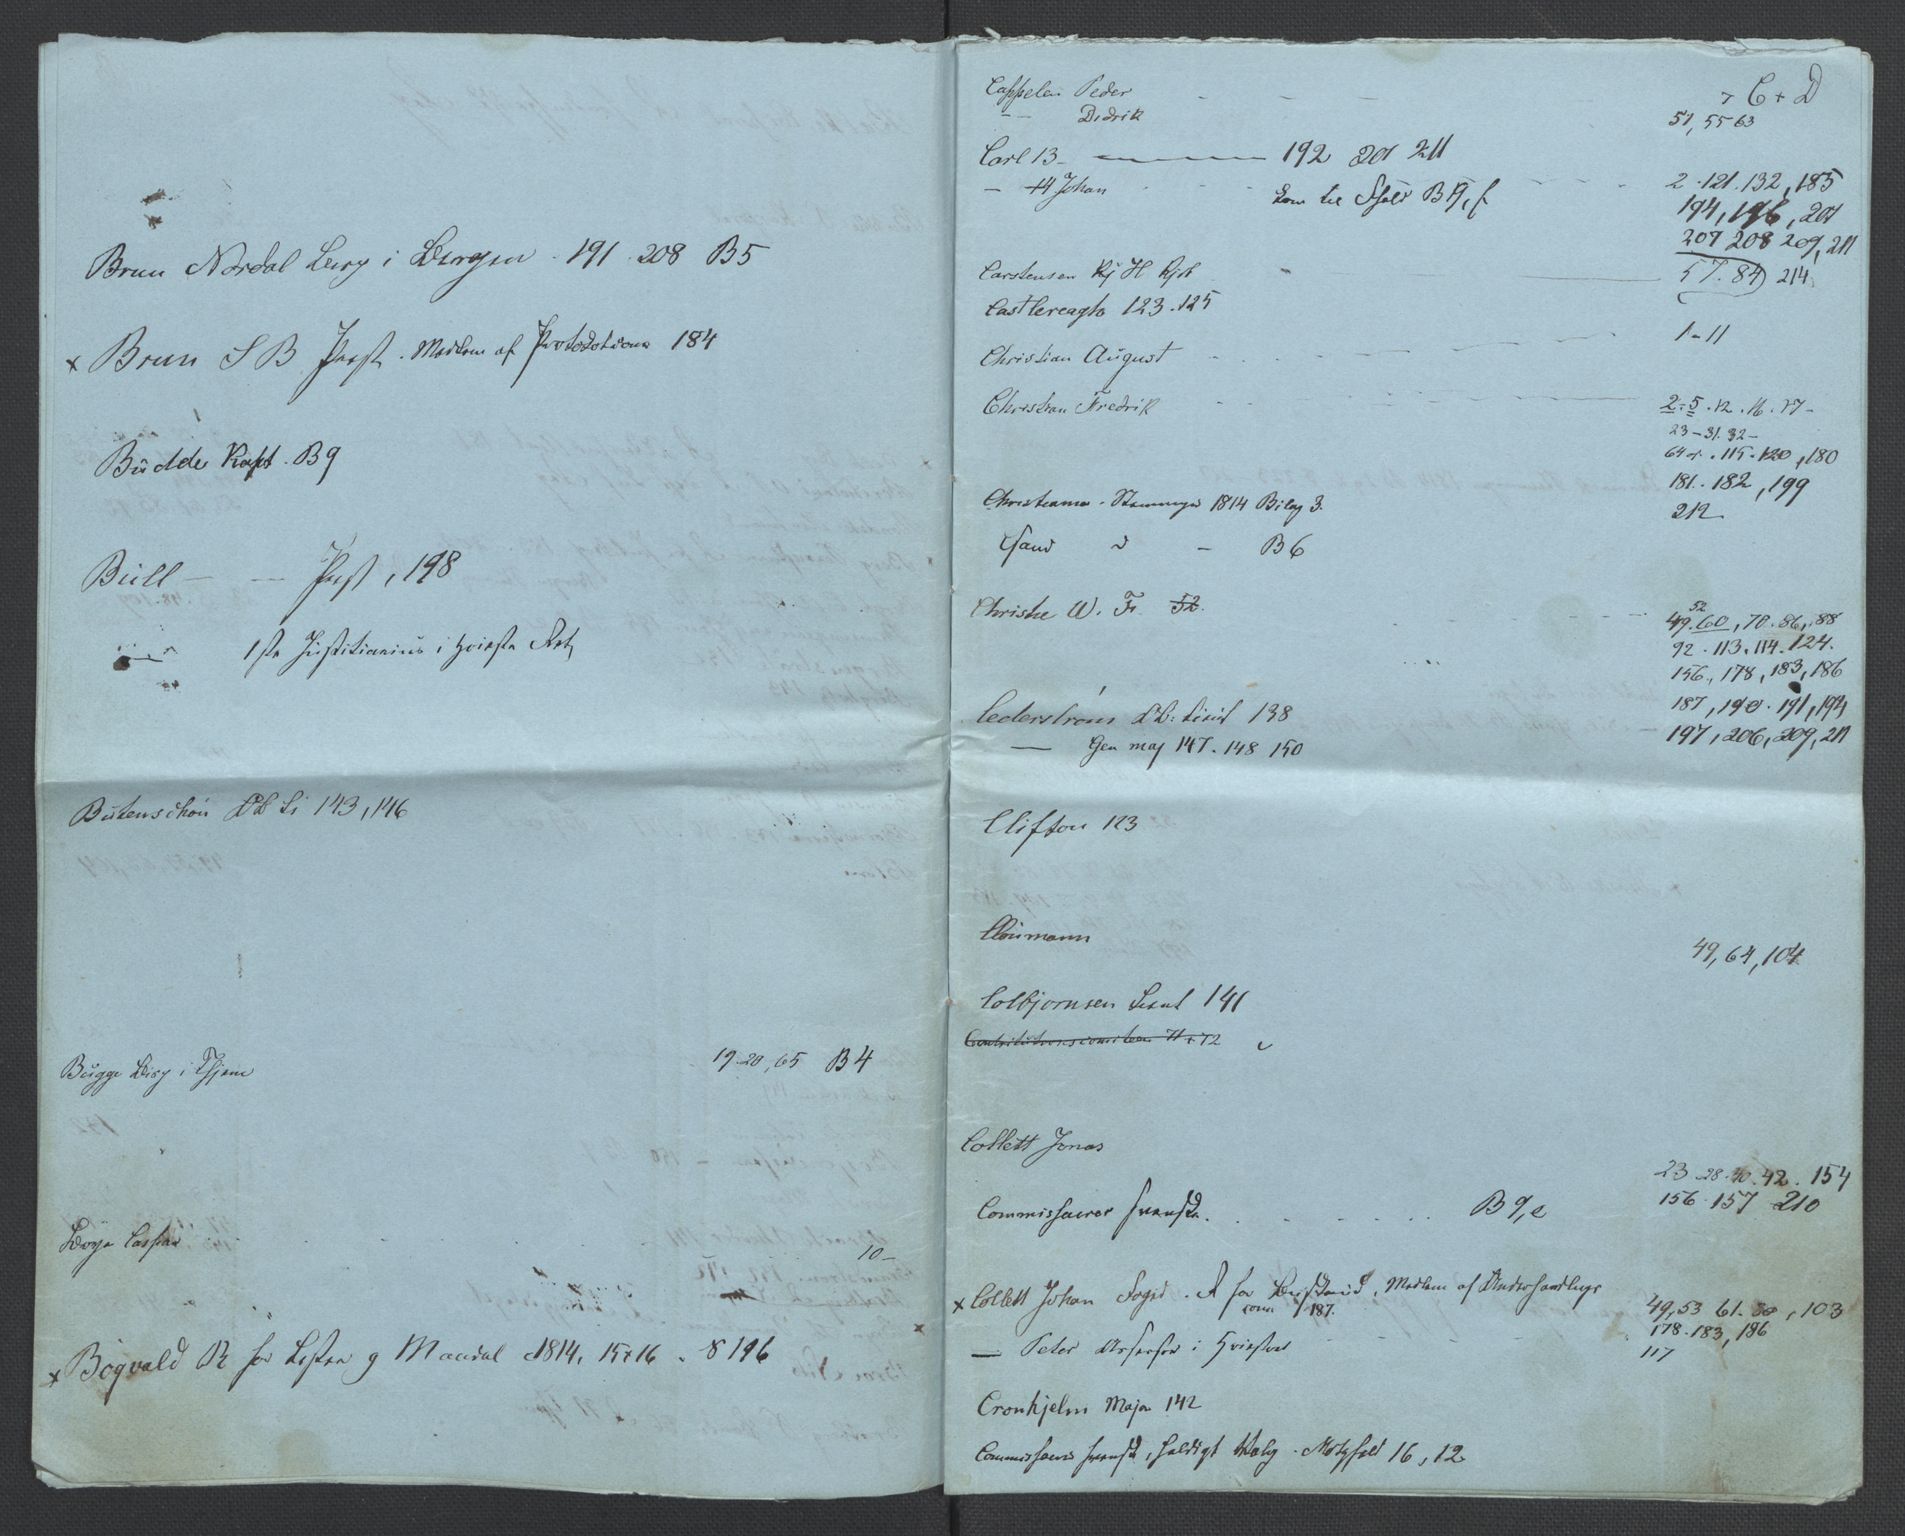 Brun Nordal Berg i Bergen . 191 . 208 B5
x Brun S B Præst . Medlem af 184
Budde Kapt . B9
Bull — — , 198
1ste Justitiarius i Høieste Ret
Butenschøn 143, 146
Bugge Bisp i Thjem 19-20, 65 B4
Caspar 10-
x Bogvald R for Lister g Mandal 1814, 15+16 . S 196
C + D
Cappelen Peder 7
— Didrik 51, 55 63
Carl 13 — 192 201 211
— 14 Johan kom til B9, f 2 . 121 . 132, 185
194, 196, 201
207 208 209, 211
Carstensen H 57. 84 214
Castlereagh 123 . 125
Christian August 1-11
Christian Fredrik 2-5 . 12 . 16 . 17-
23-31. 32-
64 . 115 . 120, 180
181 . 182, 199
Christiania . Stemninger 1814 Bilag 3.
212
Csand d — B6
Christie W. F. 52.
52
49. 60, 70 . 86, . 88
92 . 113 . 114 . 124.
156 . , 178, 183, 186
187, 190 . 191, 194
197, 206, 209, 211
Cederstrøm 138
— Gen maj 147 . 148 150
Clifton 123
Cloumann 49, 64, 104
Colbjørnsen 141
71 + 72
Collett Jonas 23 . 28 . 40 . 42 . 154
156 . 157 210
Commissairer svenske . B9, e
x Collett Johan Foged . R for . Medlem af Underhandlings
com 187.
49, 53 61 . , 103
178 . 183, 186
— Peter Assessor i Høiesteret 117
Cronhjelm Major 142
Commissairer svenske, Valg . Motzfeld 16, 12